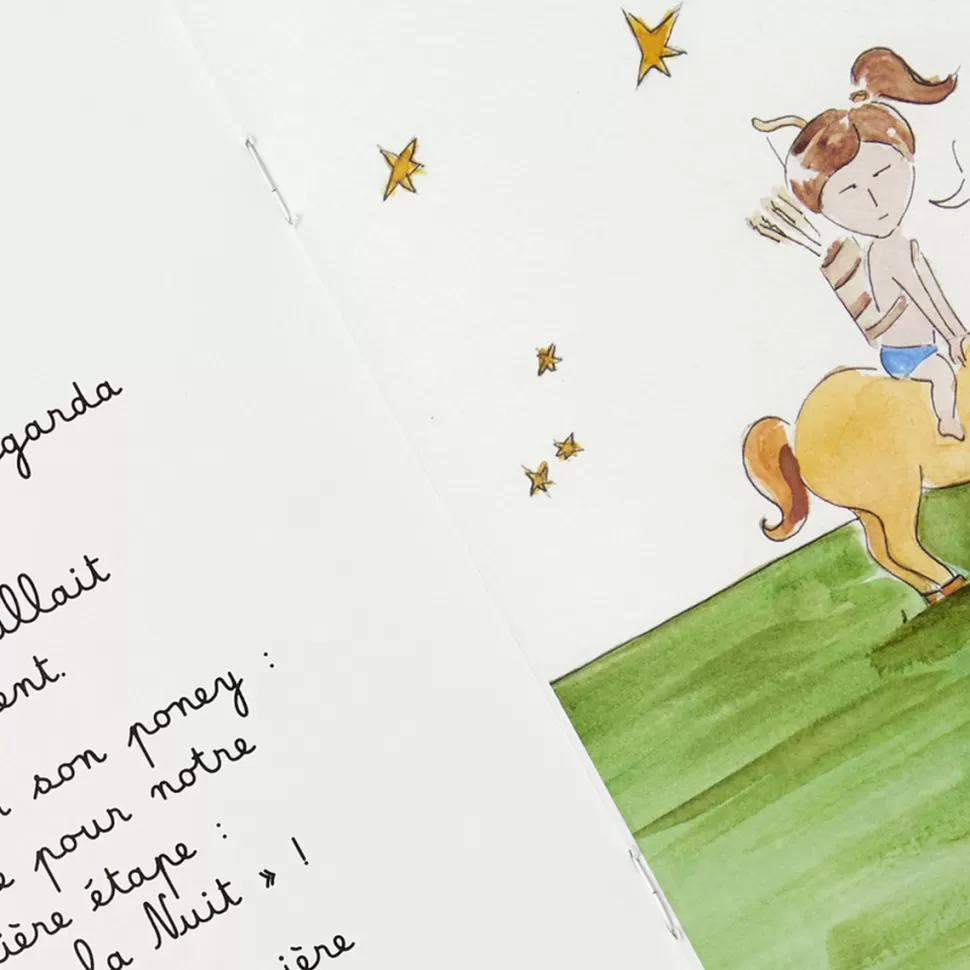 garda
allait
ent.
son poney :
pour notre
ière étape :
la Nuit » !
ière